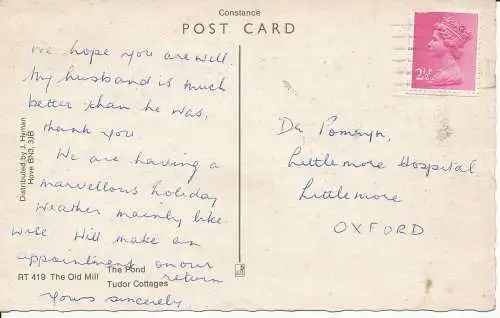 Constance
POST CARD
We hope you are well.
My husband is much
better than he was,
thank you.
We are having a
marvellous holiday
weather mainly like
wise Will make an
appointment on our
return
Yours sincerely,
Distributed by J. Hyman
Hove BN3, 3JB
RT 419 The Old Mill
The Pond
Tudor Cottages
2½P
Littlemore Hospital
Littlemore
OXFORD